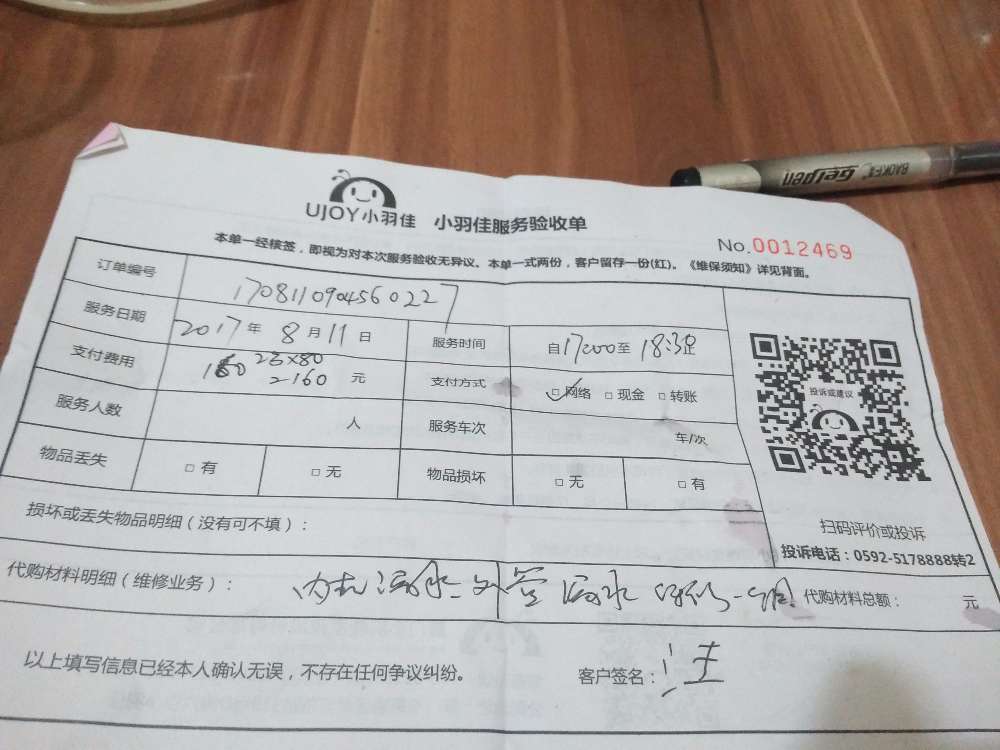 BAOKE Gelpen
UJOY小羽佳 小羽佳服务验收单
No.0012469
本单一经核签，即视为对本次服务验收无异议、本单一式两份，客户留存一份(红)。《维保须知》详见背面。
订单编号 1708110904560227
服务日期 2017年 8月11日 服务时间 自17:00至18:30止
支付费用 160 2台×80
=160 元 支付方式 ☑网络 □现金 □转账
服务人数 人 服务车次 车/次
物品丢失 □有 □无 物品损坏 □无 □有
投诉或建议
扫码评价或投诉
投诉电话：0592-5178888转2
损坏或丢失物品明细（没有可不填）：
代购材料明细（维修业务）： 内机漏水 漏水 代购材料总额： 元
以上填写信息已经本人确认无误，不存在任何争议纠纷。 客户签名：汪